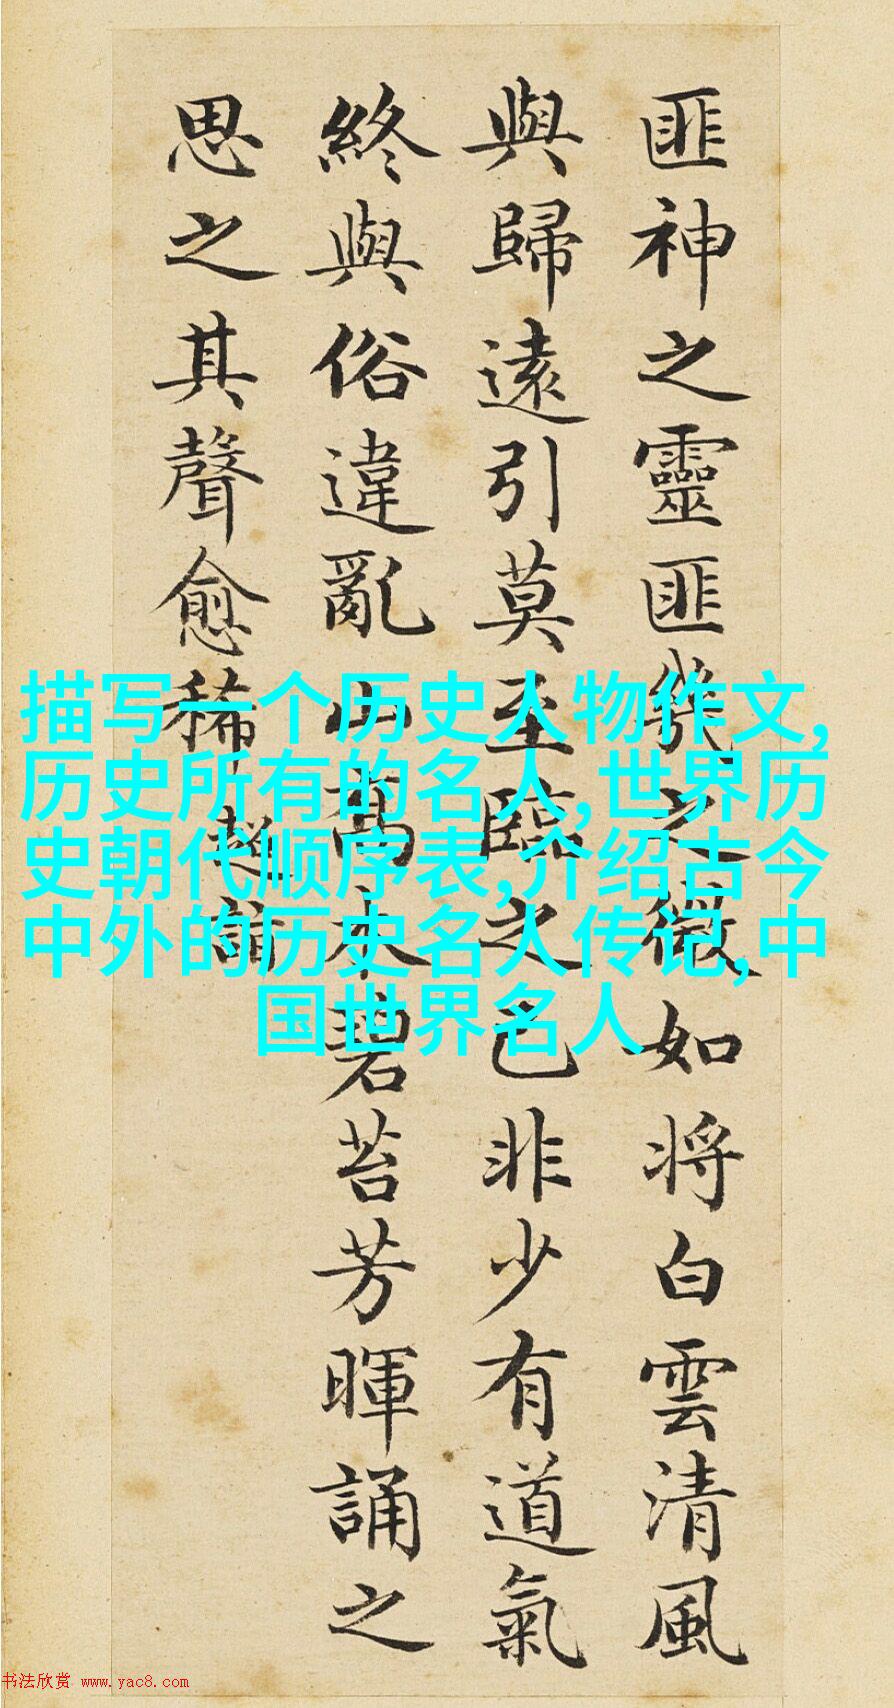 匪神之靈匪幾之微如将白雲清風
與歸遠引莫至臨之已非少有道氣
終與俗違亂山高木碧苔芳暉誦之
思之其聲愈稀 超詣
描写一个历史人物作文,
历史所有的名人,世界历
史朝代顺序表,介绍古今
中外的历史名人传记,中
国世界名人
书法欣赏 www.yac8.com